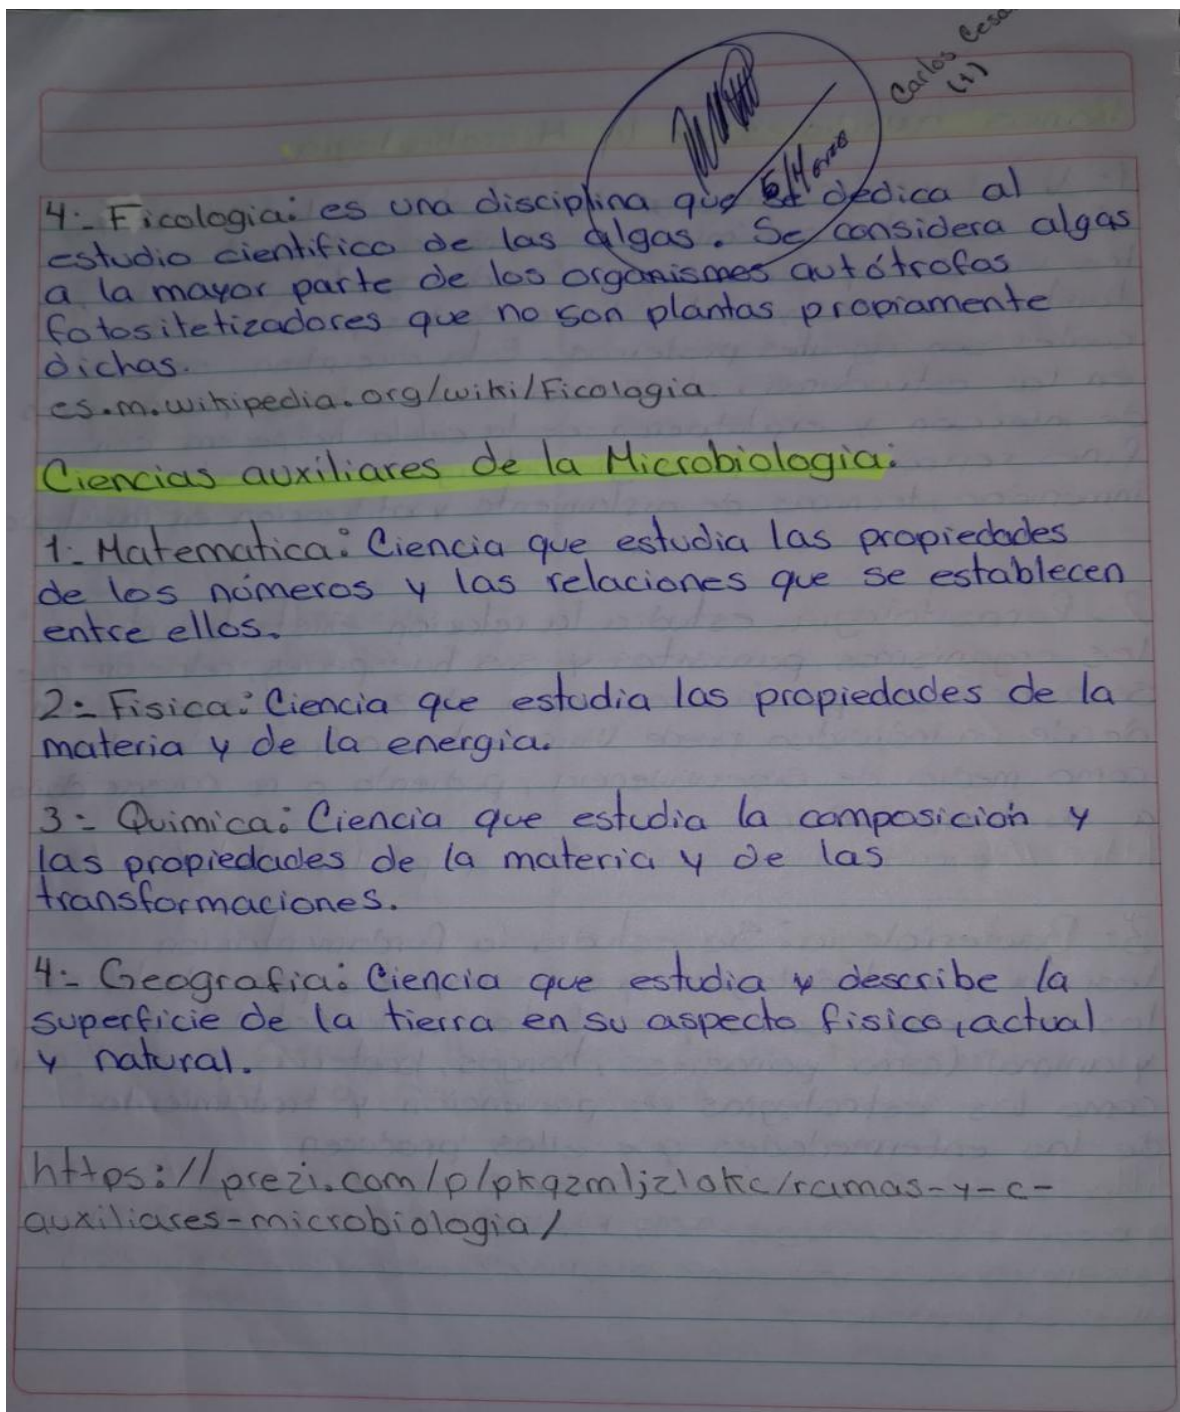 Carlos Cesa
(1)
5/Marzo
4.- Ficologia: es una disciplina que se dedica al
estudio cientifico de las algas. Se considera algas
a la mayor parte de los organismos autótrofos
fotositetizadores que no son plantas propiamente
dichas.
es.m.wikipedia.org/wiki/Ficologia
Ciencias auxiliares de la Microbiologia:
1.- Matematica: Ciencia que estudia las propiedades
de los números y las relaciones que se establecen
entre ellos.
2.- Fisica: Ciencia que estudia las propiedades de la
materia y de la energia.
3.- Quimica: Ciencia que estudia la composición y
las propiedades de la materia y de las
transformaciones.
4.- Geografia: Ciencia que estudia y describe la
superficie de la tierra en su aspecto fisico, actual
y natural.
https://prezi.com/p/pkqzmljzlokc/ramas-y-c-
auxiliares-microbiologia/